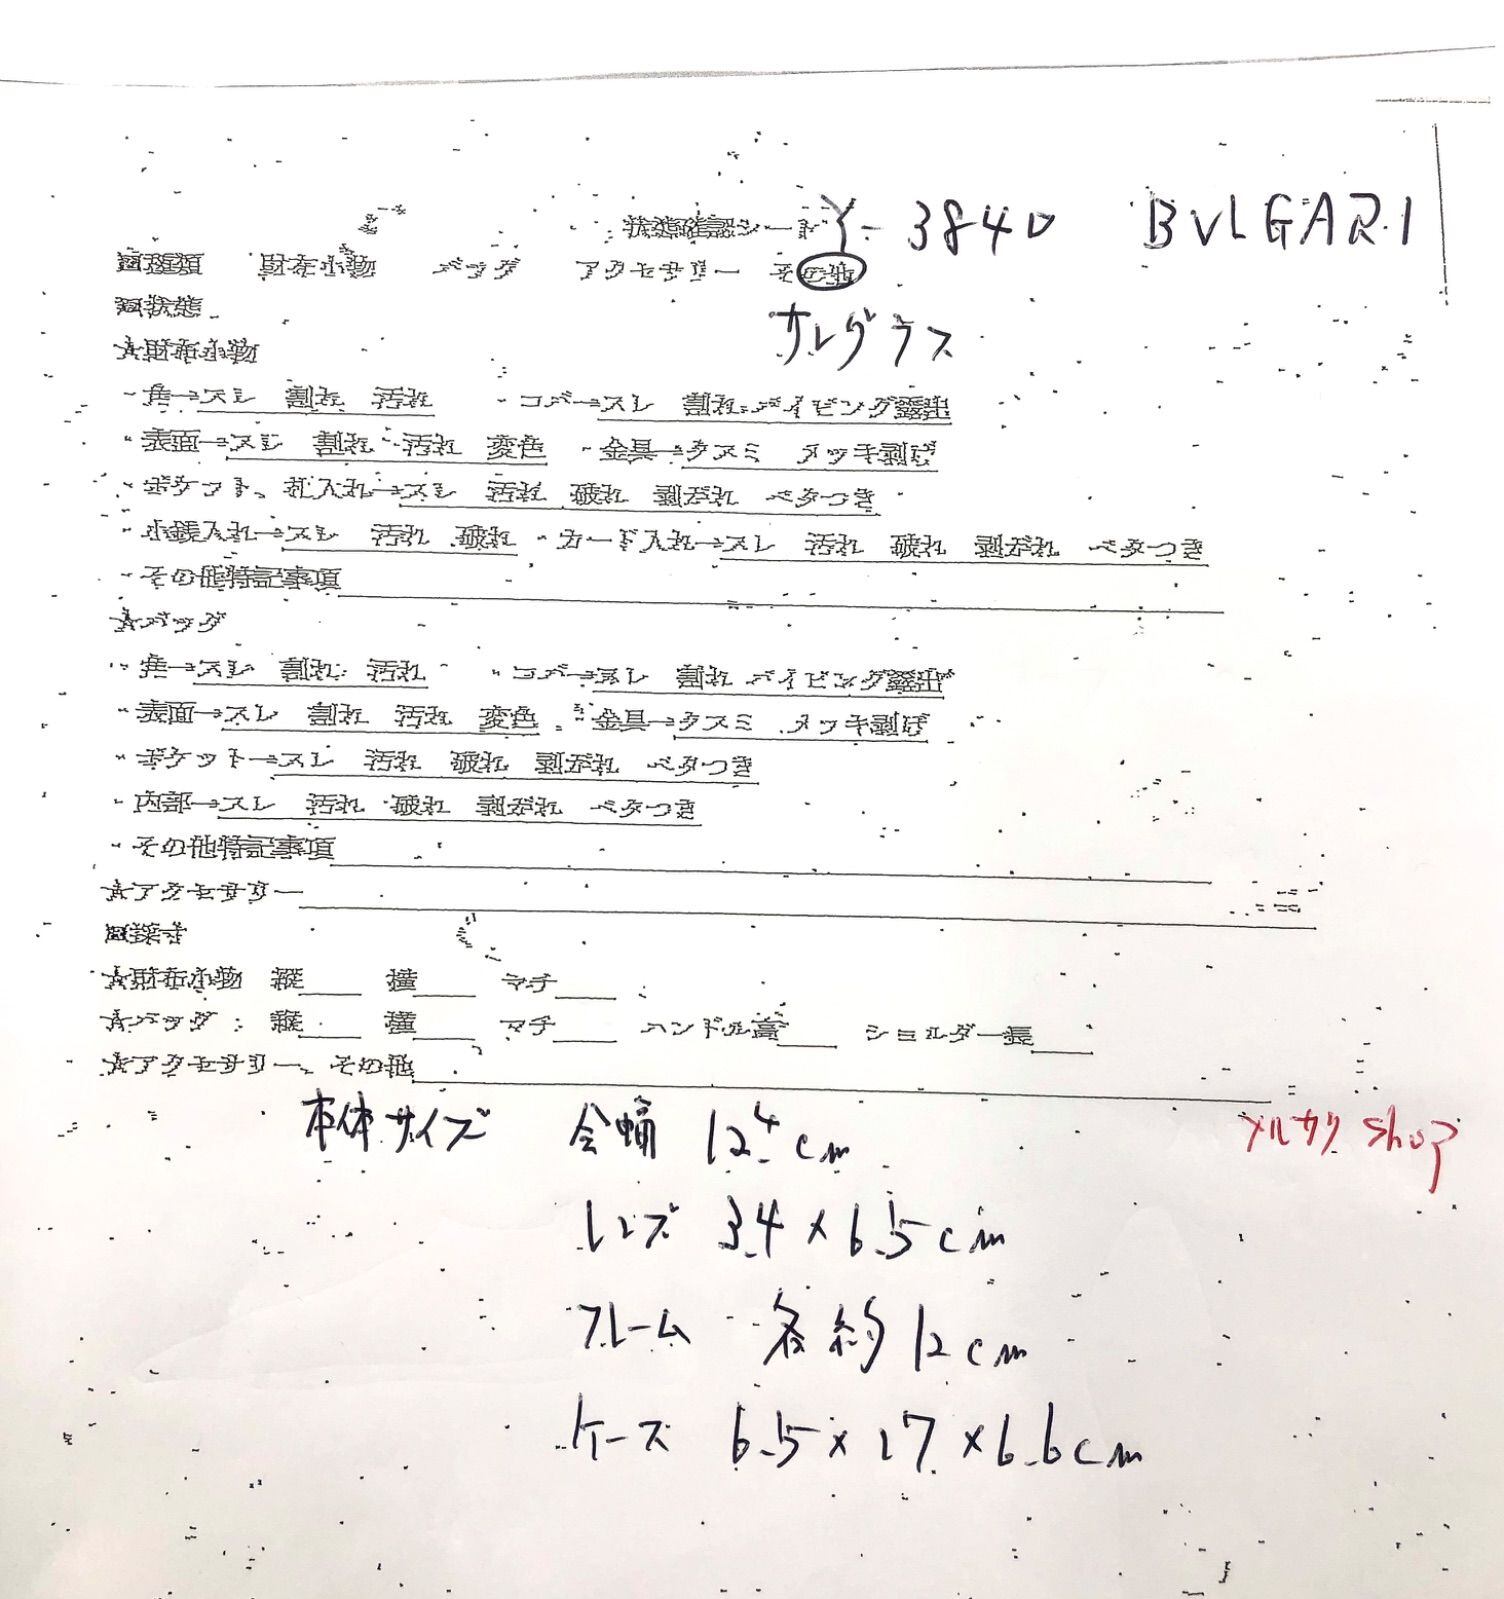 状態確認シート Y-3840 BVLGARI
□種類 財布小物 バッグ アクセサリー その他
サングラス
□状態
☆財布小物
・角→スレ 割れ 汚れ ・コバ→スレ 割れ パイピング露出
・表面→スレ 割れ 汚れ 変色 ・金具→クスミ メッキ剥げ
・ポケット、札入れ→スレ 汚れ 破れ 剥がれ ベタつき
・小銭入れ→スレ 汚れ 破れ ・カード入れ→スレ 汚れ 破れ 剥がれ ベタつき
・その他特記事項
☆バッグ
・角→スレ 割れ 汚れ ・コバ→スレ 割れ パイピング露出
・表面→スレ 割れ 汚れ 変色 ・金具→クスミ メッキ剥げ
・ポケット→スレ 汚れ 破れ 剥がれ ベタつき
・内部→スレ 汚れ 破れ 剥がれ ベタつき
・その他特記事項
☆アクセサリー
□採寸
☆財布小物 縦 横 マチ
☆バッグ 縦 横 マチ ハンドル高 ショルダー長
☆アクセサリー、その他
本体サイズ 全幅 12.4cm
メルカリ shop
レンズ 3.4×6.5cm
フレーム 各約12cm
ケース 6.5×17×6.6cm